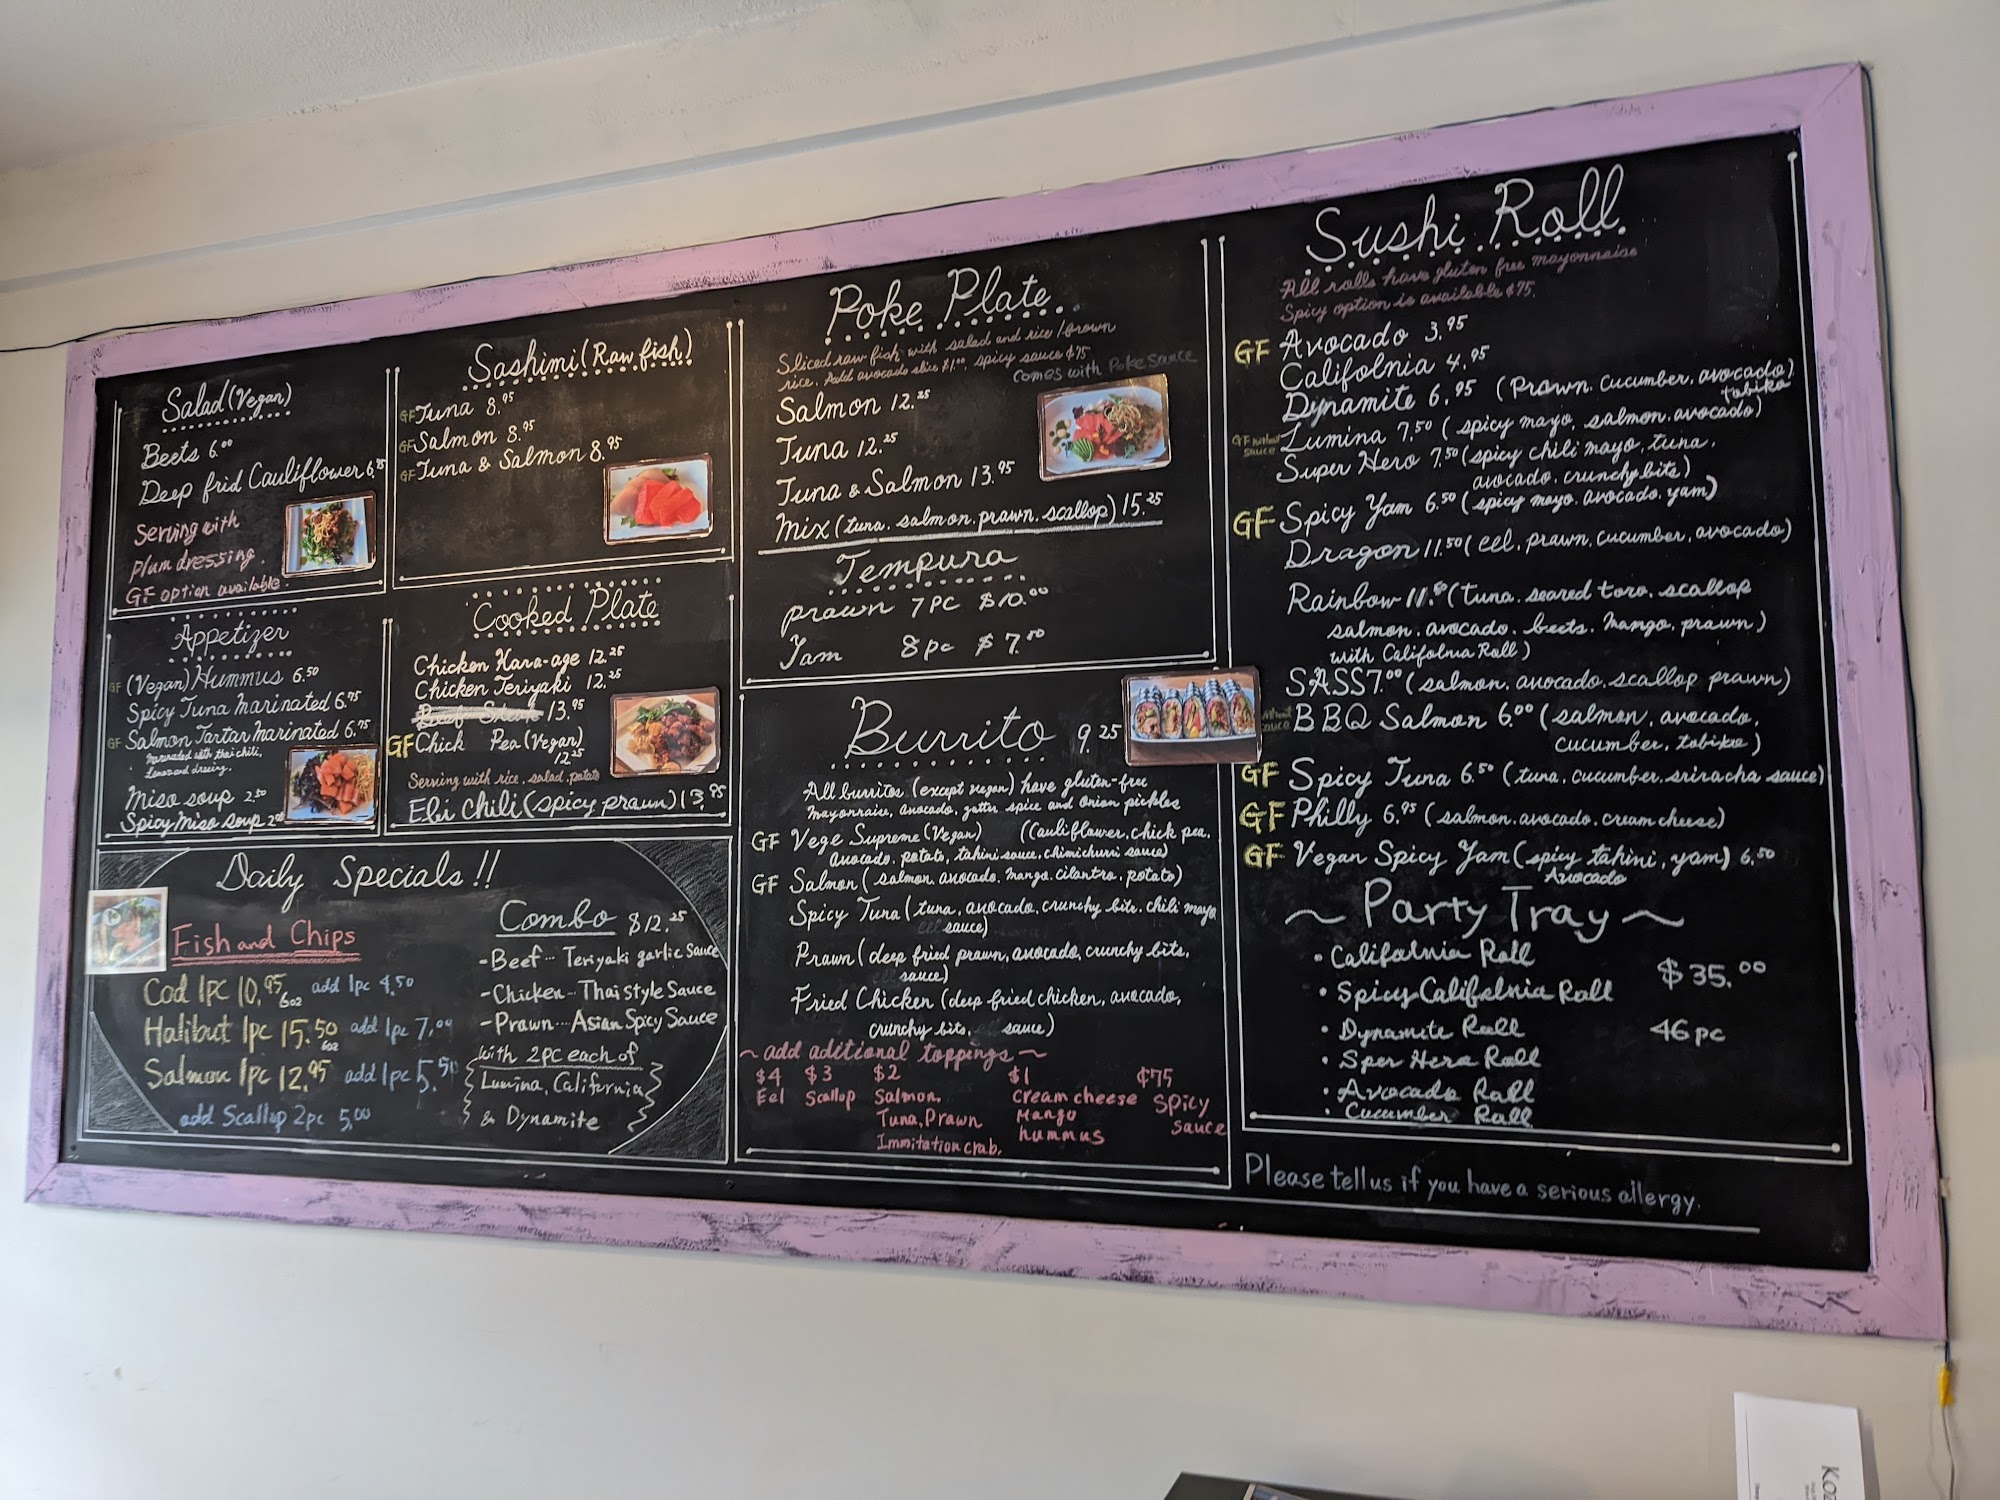 Salad (Vegan)
Beets 6.00
Deep frid Cauliflower 6.75
Serving with
plum dressing.
GF option available.
Appetizer
GF (Vegan) Hummus 6.50
Spicy Tuna marinated 6.75
GF Salmon Tartar marinated 6.75
marinated with thai chili,
Miso soup 2.50
Spicy Miso soup
Sashimi (Raw fish)
GF Tuna 8.95
GF Salmon 8.95
GF Tuna & Salmon 8.95
Cooked Plate
Chicken Kara-age 12.25
Chicken Teriyaki 12.25
Beef Steak 13.95
GF Chick Pea (Vegan)
12.25
Serving with rice, salad, potato
Ebi Chili (spicy prawn) 13.95
Daily Specials!!
Fish and Chips
Cod 1pc 10.95 6oz add 1pc 4.50
Halibut 1pc 15.50 6oz add 1pc 7.00
Salmon 1pc 12.95 add 1pc 5.50
add Scallop 2pc 5.00
Combo $12.25
- Beef... Teriyaki garlic Sauce
- Chicken... Thai style Sauce
- Prawn... Asian Spicy Sauce
with 2pc each of
Lumina, California
& Dynamite
Poke Plate
Sliced raw fish with salad and rice / brown
rice. Add avocado slice $1.00 spicy sauce $.75
comes with Poke Sauce
Salmon 12.25
Tuna 12.25
Tuna & Salmon 13.95
Mix (tuna. salmon. prawn. scallop) 15.25
Tempura
Prawn 7pc $10.00
Yam 8pc $7.50
Burrito 9.25
All burritos (except vegan) have gluten-free
Mayonnaise, avocado, spice and onion pickles
GF Vege Supreme (Vegan) (Cauliflower. chick pea,
avocado, potato, tahini sauce, chimichurri sauce)
GF Salmon (salmon. avocado. mango. cilantro. potato)
Spicy Tuna (tuna, avocado, crunchy bits, chili mayo
eel sauce)
Prawn (deep fried prawn, avocado, crunchy bits,
eel sauce)
Fried Chicken (deep fried chicken, avocado,
crunchy bits, eel sauce)
~ add aditional toppings ~
$4 $3 $2 $1 $.75
Eel Scallop Salmon, Cream cheese Spicy
Tuna, Prawn Mango sauce
Immitation crab. hummus
Sushi Roll
All rolls have gluten free mayonnaise
Spicy option is available $.75.
GF Avocado 3.95
Califolnia 4.95
Dynamite 6.95 (Prawn. cucumber. avocado)
tobiko
GF without sauce Lumina 7.50 (spicy mayo, salmon. avocado)
Super Hero 7.50 (spicy chili mayo, tuna.
avocado. crunchy bits)
GF Spicy Yam 6.50 (spicy mayo, avocado, yam)
Dragon 11.50 (eel, prawn, cucumber, avocado)
Rainbow 11.50 (tuna. seared toro, scallop
salmon. avocado. beets. mango. prawn)
with Califolnia Roll)
SASS 7.00 (salmon. avocado. scallop prawn)
without sauce BBQ Salmon 6.00 (salmon, avocado,
cucumber, tobiko)
GF Spicy Tuna 6.50 (tuna. cucumber. sriracha sauce)
GF Philly 6.95 (salmon. avocado. cream cheese)
GF Vegan Spicy Yam (spicy tahini, yam) 6.50
Avocado
~ Party Tray ~
• California Roll
• Spicy Califolnia Roll
• Dynamite Roll
• Sper Hero Roll
• Avocado Roll
• Cucumber Roll
$35.00
46pc
Please tell us if you have a serious allergy.